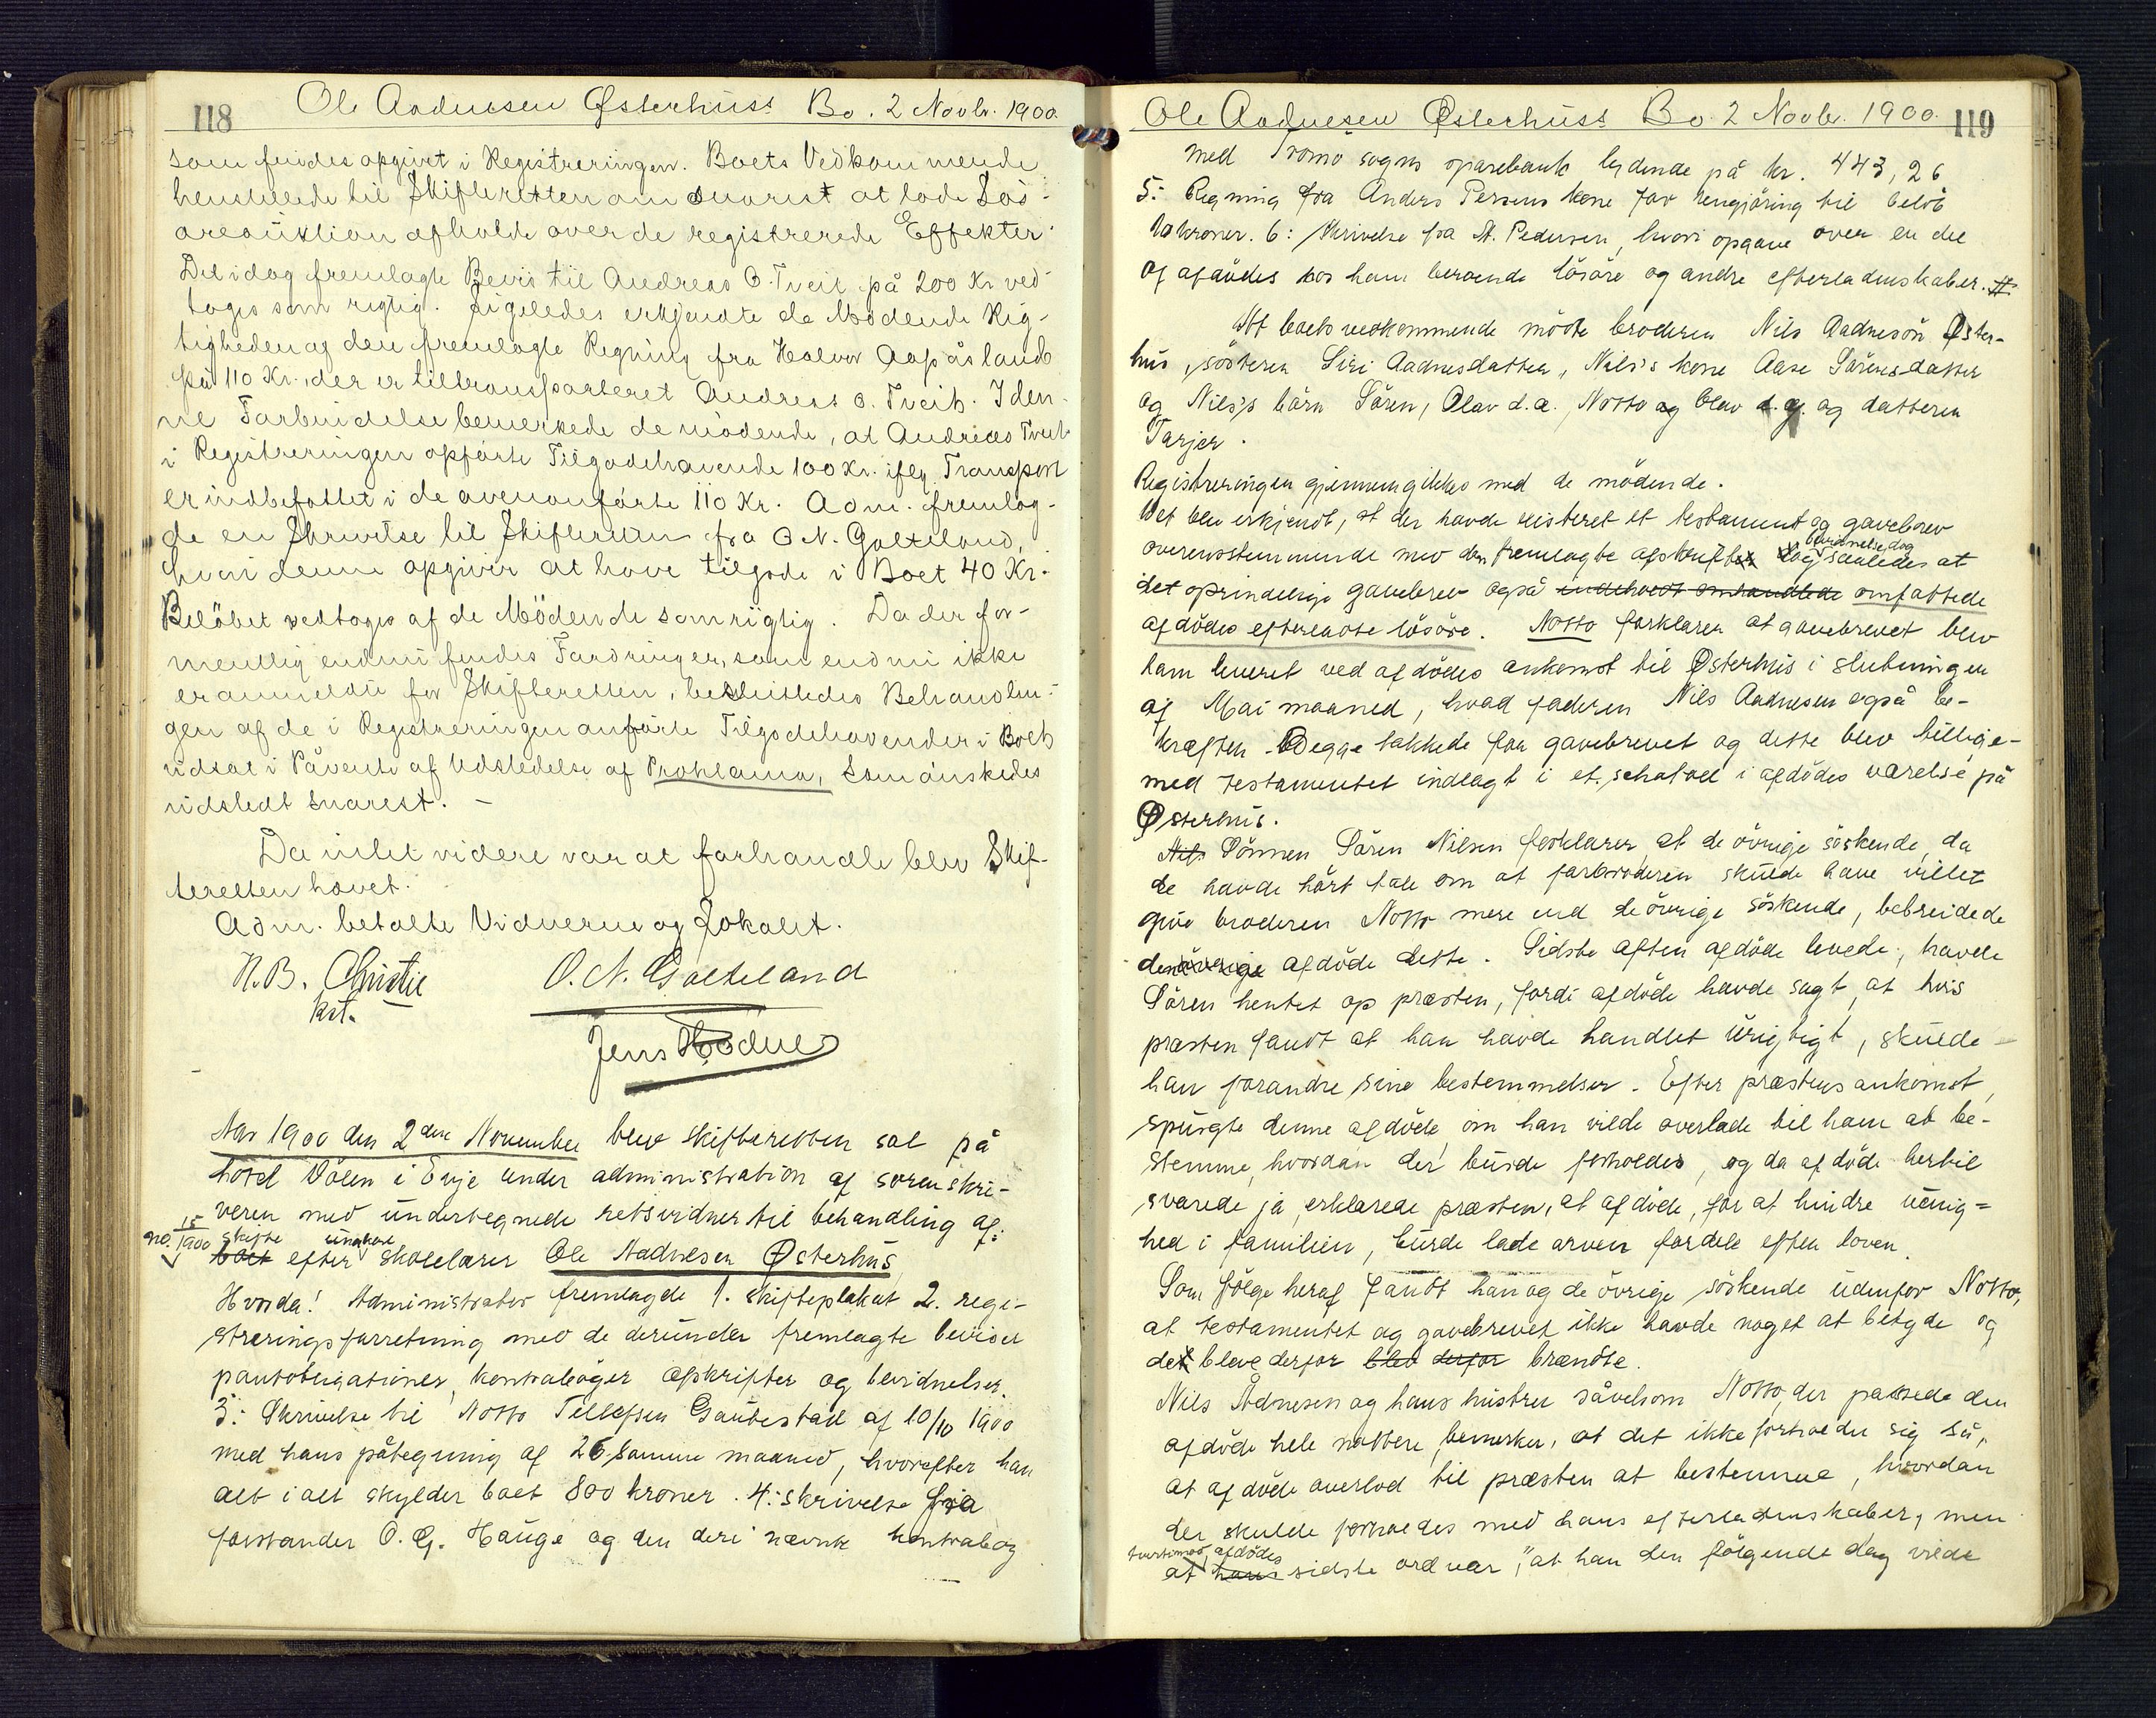 118
Ole Aadnesen Østerhus's Bo. 2 Novbr. 1900.
som findes opgivet i Registreringen. Boets Vedkommende
henstillede til Skifteretten om snarest at lade Løs-
øreauktion afholde over de registrerede Effekter.
Det idag fremlagte Bevis til Andreas O. Tveit på 200 Kr ved-
toges som rigtig. Ligeledes erkjendte de Mødende Rig-
tigheden af den fremlagte Regning fra Halvor Aapåsland
på 110 Kr. der er tiltransporteret Andreas O. Tveit. I den-
ne Forbindelse bemerkede de mødende, at Andreas Tveit
i Registreringen opførte Tilgodehavende 100 Kr. iflg. Transport
er indbefattet i de ovenanførte 110 Kr. Adm. fremlag-
de en Skrivelse til Skifteretten fra O. N. Galteland,
hvori denne opgiver at have tilgode i Boet 40 Kr.
Beløbet vedtoges af de Mødende som rigtig. Da der for-
mentlig endnu findes Fordringer, som endnu ikke
er anmeldte for Skifteretten, besluttedes Behandlin-
gen af de i Registreringen anførte Tilgodehavender i Boet
udsat i Påvente af Udstedelse af Proklama, som ønskedes
udstedt snarest. –
Da intet videre var at forhandle blev Skif-
teretten hævet.
Adm. betalte Vidnerne og Lokalet.
H. B. Christie
kst.
O. N. Galteland
Jens Hodne
Aar 1900 den 2den November blev skifteretten sat på
hotel Dölen i Evje under administration af sorenskri-
veren med undertegnede retsvidner til behandling af:
no. 15/1900 skifte ungkar
boet efter skolelærer Ole Aadnesen Østerhus
Hvorda! Administrator fremlagde 1. skifteplakat 2. regi-
streringsforretning med de derunder fremlagte beviser
pantobligationer, kontrabøger afskrifter og bevidnelser.
3: Skrivelse til Notto Tellefsen Gautestad af 10/10 1900
med hans påtegning af 26 samme maaned, hvorefter han
alt i alt skylder boet 800 kroner. 4: skrivelse fra
forstander O. G. Hauge og den deri nævnte kontrabog
Ole Aadnesen Østerhus's Bo. 2 Novbr. 1900.
119
med Tromö sogns sparebank lydende på kr. 443,26
5: Regning fra Anders Persens kone for rengjöring til belöb
10 kroner. 6: Skrivelse fra N. Pedersen, hvori opgave over en del
af afdödes hos ham beroende lösöre og andre efterladenskaber.
Af boets vedkommende mödte broderen Nils Aadnesön Øster-
hus, sösteren Siri Aadnesdatter, Nils's kone Aase Sörensdatter
og Nils's börn Sören, Olav d.æ., Notto og Olav d.y. og datteren
Tarjer.
Registreringen gjennemgikkes med de mödende.
Det blev erkjendt, at der havde existeret et testament og gavebrev
bevidnelse, dog
overensstemmende med den fremlagte afskrift og saaledes at
det oprindelige gavebrev også indeholdt omhandlede omfattede
afdödes efterladte lösöre. Notto forklarer at gavebrevet blev
ham leveret ved afdödes ankomst til Østerhus i slutningen
af Mai maaned, hvad faderen Nils Aadnesen også be-
kræfter. Begge takkede for gavebrevet og dette blev tillige-
med testamentet indlagt i et schatol i afdödes værelse på
Østerhus.
Nils Sönnen Sören Nilsen forklarer at de övrige söskende, da
de havde hört tale om at farbroderen skulde have villet
give broderen Notto mere end de övrige söskende, bebreidede
den övrige afdöde dette. Sidste aften afdöde levede, havde
Sören hentet op præsten, fordi afdöde havde sagt, at hvis
præsten fandt at han havde handlet urigtigt, skulde
han forandre sine bestemmelser. Efter præstens ankomst,
spurgte denne afdöde, om han vilde overlade til ham at be-
stemme, hvordan der burde forholdes, og da afdöde hertil
svarede ja, erklærede præsten, at afdöde, for at hindre uenig-
hed i familien, burde lade arven fordele efter loven.
Som fölge heraf fandt han og de övrige söskende udenfor Notto,
at testamentet og gavebrevet ikke havde noget at betyde og
de bleve derfor blev derfor brændte.
Nils Ådnesen og hans hustru såvelsom Notto, der passede den
afdöde hele natten, bemerker, at det ikke forholder sig så,
at afdöde overlod til præsten at bestemme, hvordan
der skulde forholdes med hans efterladenskaber, men
tvertimod afdödes
at hans sidste ord var, "at han den fölgende dag vilde